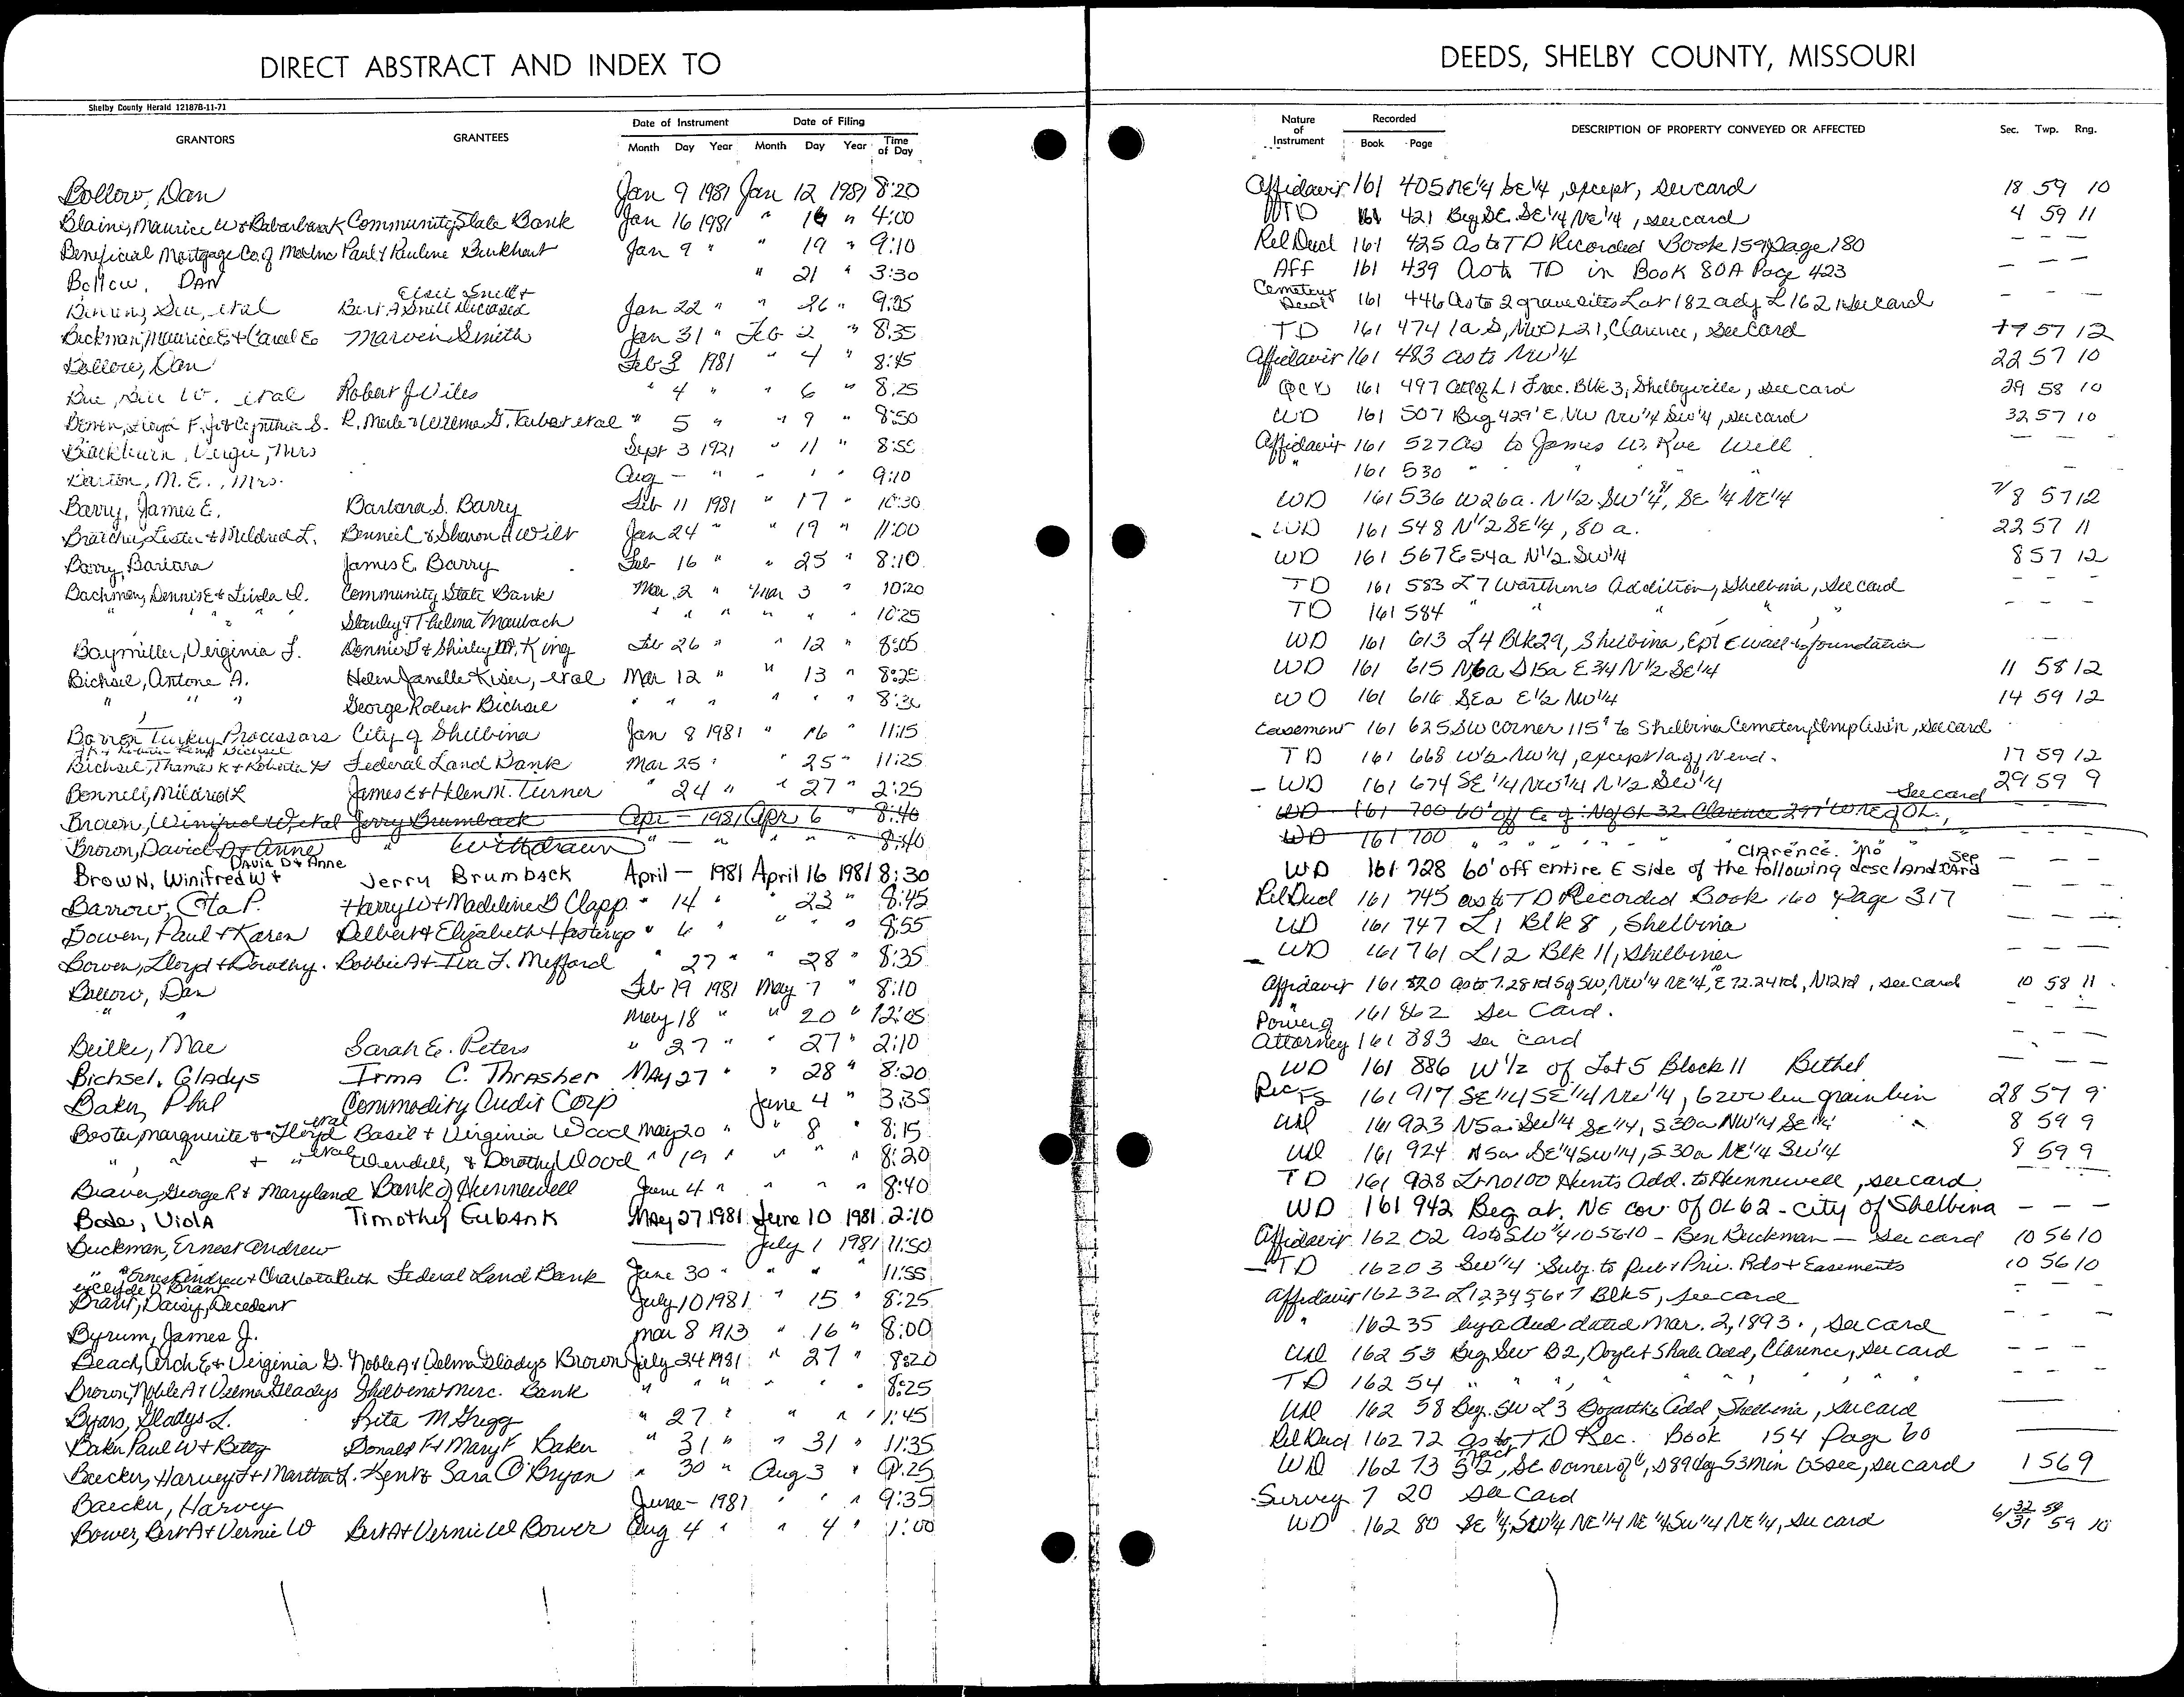 DIRECT ABSTRACT AND INDEX TO
Shelby County Herald 12187B-11-71
GRANTORS GRANTEES Date of Instrument Date of Filing
Month Day Year Month Day Year Time of Day
Bollow, Dan Jan 9 1981 Jan 12 1981 8:20
Blaine, Maurice W & Community State Bank Jan 16 1981 " 16 " 4:00
Beneficial Mortgage Co. of Mo Inc Paul & Pauline Burkhart Jan 9 " " 19 " 9:10
Bollow, Dan " 21 " 3:30
Elsie Snell &
et al Bert A Snell Deceased Jan 22 " " 26 " 9:05
Buckman, Maurice E & Carol E. Marvin Smith Jan 31 " Feb 2 " 8:35
Bollow, Dan Feb 3 1981 " 4 " 8:45
et al Robert J Wiles " 4 " " 6 " 8:25
F. Jr & Cynthia S. R. Merle & et al " 5 " " 9 " 8:50
Blackburn, Vergie, Mrs Sept 3 1921 " 11 " 8:55
Barton, M. E., Mrs. Aug — " " " " 9:10
Barry, James E. Barbara S. Barry Feb 11 1981 " 17 " 10:30
Lester & Mildred L. Bennie L & Sharon A Wilt Jan 24 " " 19 " 11:00
Barry, Barbara James E. Barry Feb 16 " " 25 " 8:10
Bachman, Dennis E & Linda D. Community State Bank Mar. 2 " Mar 3 " 10:20
" " " Stanley & Thelma Maubach " " " " " " 10:25
Baymiller, Virginia F. Bonnie D & Shirley M. King Feb 26 " " 12 " 8:05
Bichsel, Antone A. Helen Janelle Kiser, et al Mar 12 " " 13 " 8:25
" " " George Robert Bichsel " " " " " " 8:30
Borron Turkey Processors City of Shelbina Jan 8 1981 " 16 " 11:15
Bichsel, Thomas K & Roberta Federal Land Bank Mar 25 " " 25 " 11:25
Bonnell, Mildred L James E & Helen M. Turner " 24 " " 27 " 2:25
Brown, Winifred W, et al Jerry Brumback Apr — 1981 Apr 6 " 8:40
Brown, David D & Anne " Withdrawn " — " " " 8:40
David D & Anne
Brown, Winifred W & Jerry Brumback April — 1981 April 16 1981 8:30
Barrow, Ota P. Harry W & Madeline B Clapp " 14 " " 23 " 8:45
Bowen, Paul & Karen Delbert & Elizabeth Hastings " 6 " " " " 8:55
Bowen, Lloyd & Dorothy. Bobbie A & Iva F. Mefford " 27 " " 28 " 8:35
Bollow, Dan Feb 19 1981 May 7 " 8:10
" " May 18 " " 20 " 12:05
Beilke, Mae Sarah E. Peters " 27 " " 27 " 2:10
Bichsel, Gladys Irma C. Thrasher May 27 " " 28 " 8:20
Baker, Phil Commodity Credit Corp June 4 " 3:35
et al
Boster, Marguerite & Lloyd Basil & Virginia Wood May 20 " " 8 " 8:15
" , " & " et al Wendell, & Dorothy Wood " 19 " " " " 8:20
George R & Maryland Bank of Hunnewell June 4 " " " " 8:40
Bode, Viola Timothy Eubank May 27 1981 June 10 1981 2:10
Buckman, Ernest Andrew —— July 1 1981 11:50
" " Ernest Andrew & Charlotte Ruth Federal Land Bank June 30 " " " " 11:55
Brant, Daisy, Decedent July 10 1981 " 15 " 8:25
Byrum, James J. Mar 8 1913 " 16 " 8:00
Beach, Arch E & Virginia G. Noble A & Velma Gladys Brown July 24 1981 " 27 " 8:20
Brown, Noble A & Velma Gladys Shelbina Merc. Bank " " " " " " 8:25
Byars, Gladys L. Rita M Gregg " 27 " " " " 1:45
Baker Paul W & Betty Donald F & Mary F Baker " 31 " " 31 " 11:35
Baecker, Harvey F & Martha L. Kent & Sara O'Bryan " 30 " Aug 3 " 9:25
Baecker, Harvey June — 1981 " " " 9:35
Bower, Bert A & Vernie W Bert A & Vernie W Bower Aug 4 " " 4 " 1:00
DEEDS, SHELBY COUNTY, MISSOURI
Nature of Instrument Recorded Book Page DESCRIPTION OF PROPERTY CONVEYED OR AFFECTED Sec. Twp. Rng.
Affidavit 161 405 NE¼ SE¼, except, see card 18 59 10
WTD 161 421 Beg SE. SE¼ NE¼, see card 4 59 11
Rel Deed 161 425 As to TD Recorded Book 159 Page 180 — — —
Aff 161 439 As to TD in Book 80A Page 423 — — —
Cemetery Deed 161 446 As to 2 gravesites Lot 182 adj L 162, see card — — —
TD 161 474 1a S, L 21, Clarence, see card 17 57 12
Affidavit 161 483 as to NW¼ 22 57 10
QCD 161 497 L 1 Frac. Blk 3, Shelbyville, see card 29 58 10
WD 161 507 Beg 429' E. NW NW¼ SW¼, see card 32 57 10
Affidavit 161 527 as to James W. Roe Will — — —
" 161 530 " " " " — —
WD 161 536 W26a. N½ SW¼, SE¼ NE¼ 7/8 57 12
WD 161 548 N½ SE¼, 80 a. 22 57 11
WD 161 567 E 54a N½ SW¼ 8 57 12
TD 161 583 L 7 Warthens Addition, Shelbina, see card — — —
TD 161 584 " " " " " — — —
WD 161 613 L4 Blk 29, Shelbina, Ept E wall & foundation — —
WD 161 615 N6a S15a E¾ N½ SE¼ 11 58 12
WD 161 616 SEa E½ NW¼ 14 59 12
Easement 161 625 SW corner 115' to Shelbina Cemetery Imp Ass'n, see card
TD 161 668 W½ NW¼, except 1a of N end. 17 59 12
WD 161 674 SE¼ NW¼ N½ SW¼ 29 59 9
See card
WD 161 700 60' off E of N of OL 32 Clarence 297' W NE of OL,
WD 161 700 " " " " "
Clarence. Mo See
WD 161 728 60' off entire E side of the following desc land card — — —
Rel Deed 161 745 as to TD Recorded Book 160 Page 317 — — —
WD 161 747 L1 Blk 8, Shelbina — — —
WD 161 761 L12 Blk 11, Shelbina — — —
Affidavit 161 820 as to 7.28 rd Sq SW, NW¼ NE¼, E 72.24 rd, N 12 rd, see card 10 58 11
" 161 862 See Card. — —
Power of Attorney 161 883 see card — — —
WD 161 886 W½ of Lot 5 Block 11 Bethel — — —
161 917 SE¼ SE¼ NW¼, 6200 bu grain bin 28 57 9
WD 161 923 N5a SW¼ SE¼, S30a NW¼ SE¼ 8 59 9
WD 161 924 N5a SE¼ SW¼, S 30a NE¼ SW¼ 8 59 9
TD 161 928 Lt No 100 Hunts Add. to Hunnewell, see card — — —
WD 161 942 Beg at. NE cor of OL 62 - city of Shelbina — — —
Affidavit 162 02 As to SW¼ 10 56 10 - Ben Buckman — see card 10 56 10
TD 162 03 SW¼ Subj. to Pub & Priv. Rds & Easements 10 56 10
Affidavit 162 32 L 1 2 3 4 5 6 & 7 Blk 5, see card — — —
" 162 35 by a deed dated Mar. 2, 1893., see card — — —
WD 162 53 Beg SW B2, Doyle & Shale Add, Clarence, see card — — —
TD 162 54 " " " " " " " " — — —
WD 162 58 Beg. SW L3 Bozarths Add, Shelbina, see card ——
Rel Deed 162 72 as to TD Rec. Book 154 Page 60 ——
Tract
WD 162 73 S½, SE corner of, S 89 deg 53 min 05 sec, see card 1 56 9
Survey 7 20 See Card
WD 162 80 SE¼, SW¼ NE¼ NE¼ SW¼ NE¼, see card 6/31 32 58 59 10